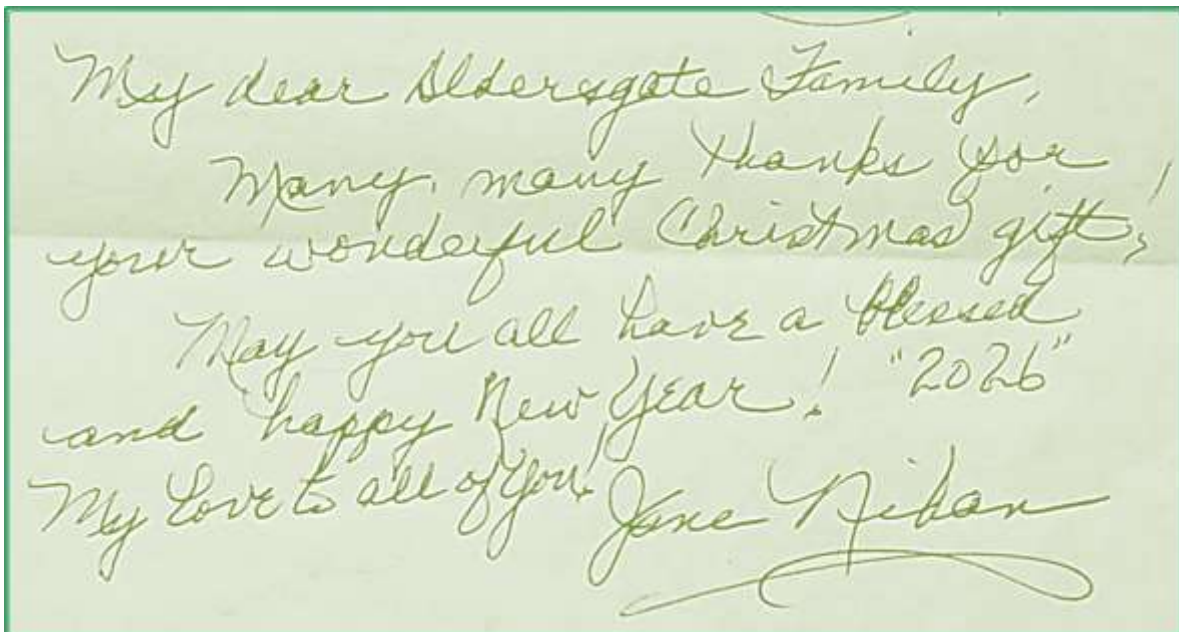 My dear Aldersgate Family,
Many, many thanks for
your wonderful Christmas gift!
May you all have a blessed
and happy New Year! "2026"
My Love to all of you! Jane